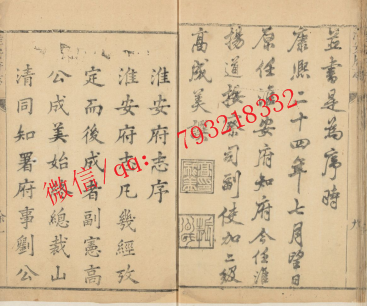 並書是為序時
康熙二十四年七月望日
原任淮安府知府今任淮
揚道按察司副使加二級
高成美
淮安府志序
淮安府志凡幾經攷
定而後成者副憲高
公成美始總裁山
清同知署府事劉公
微信/qq: 793218332